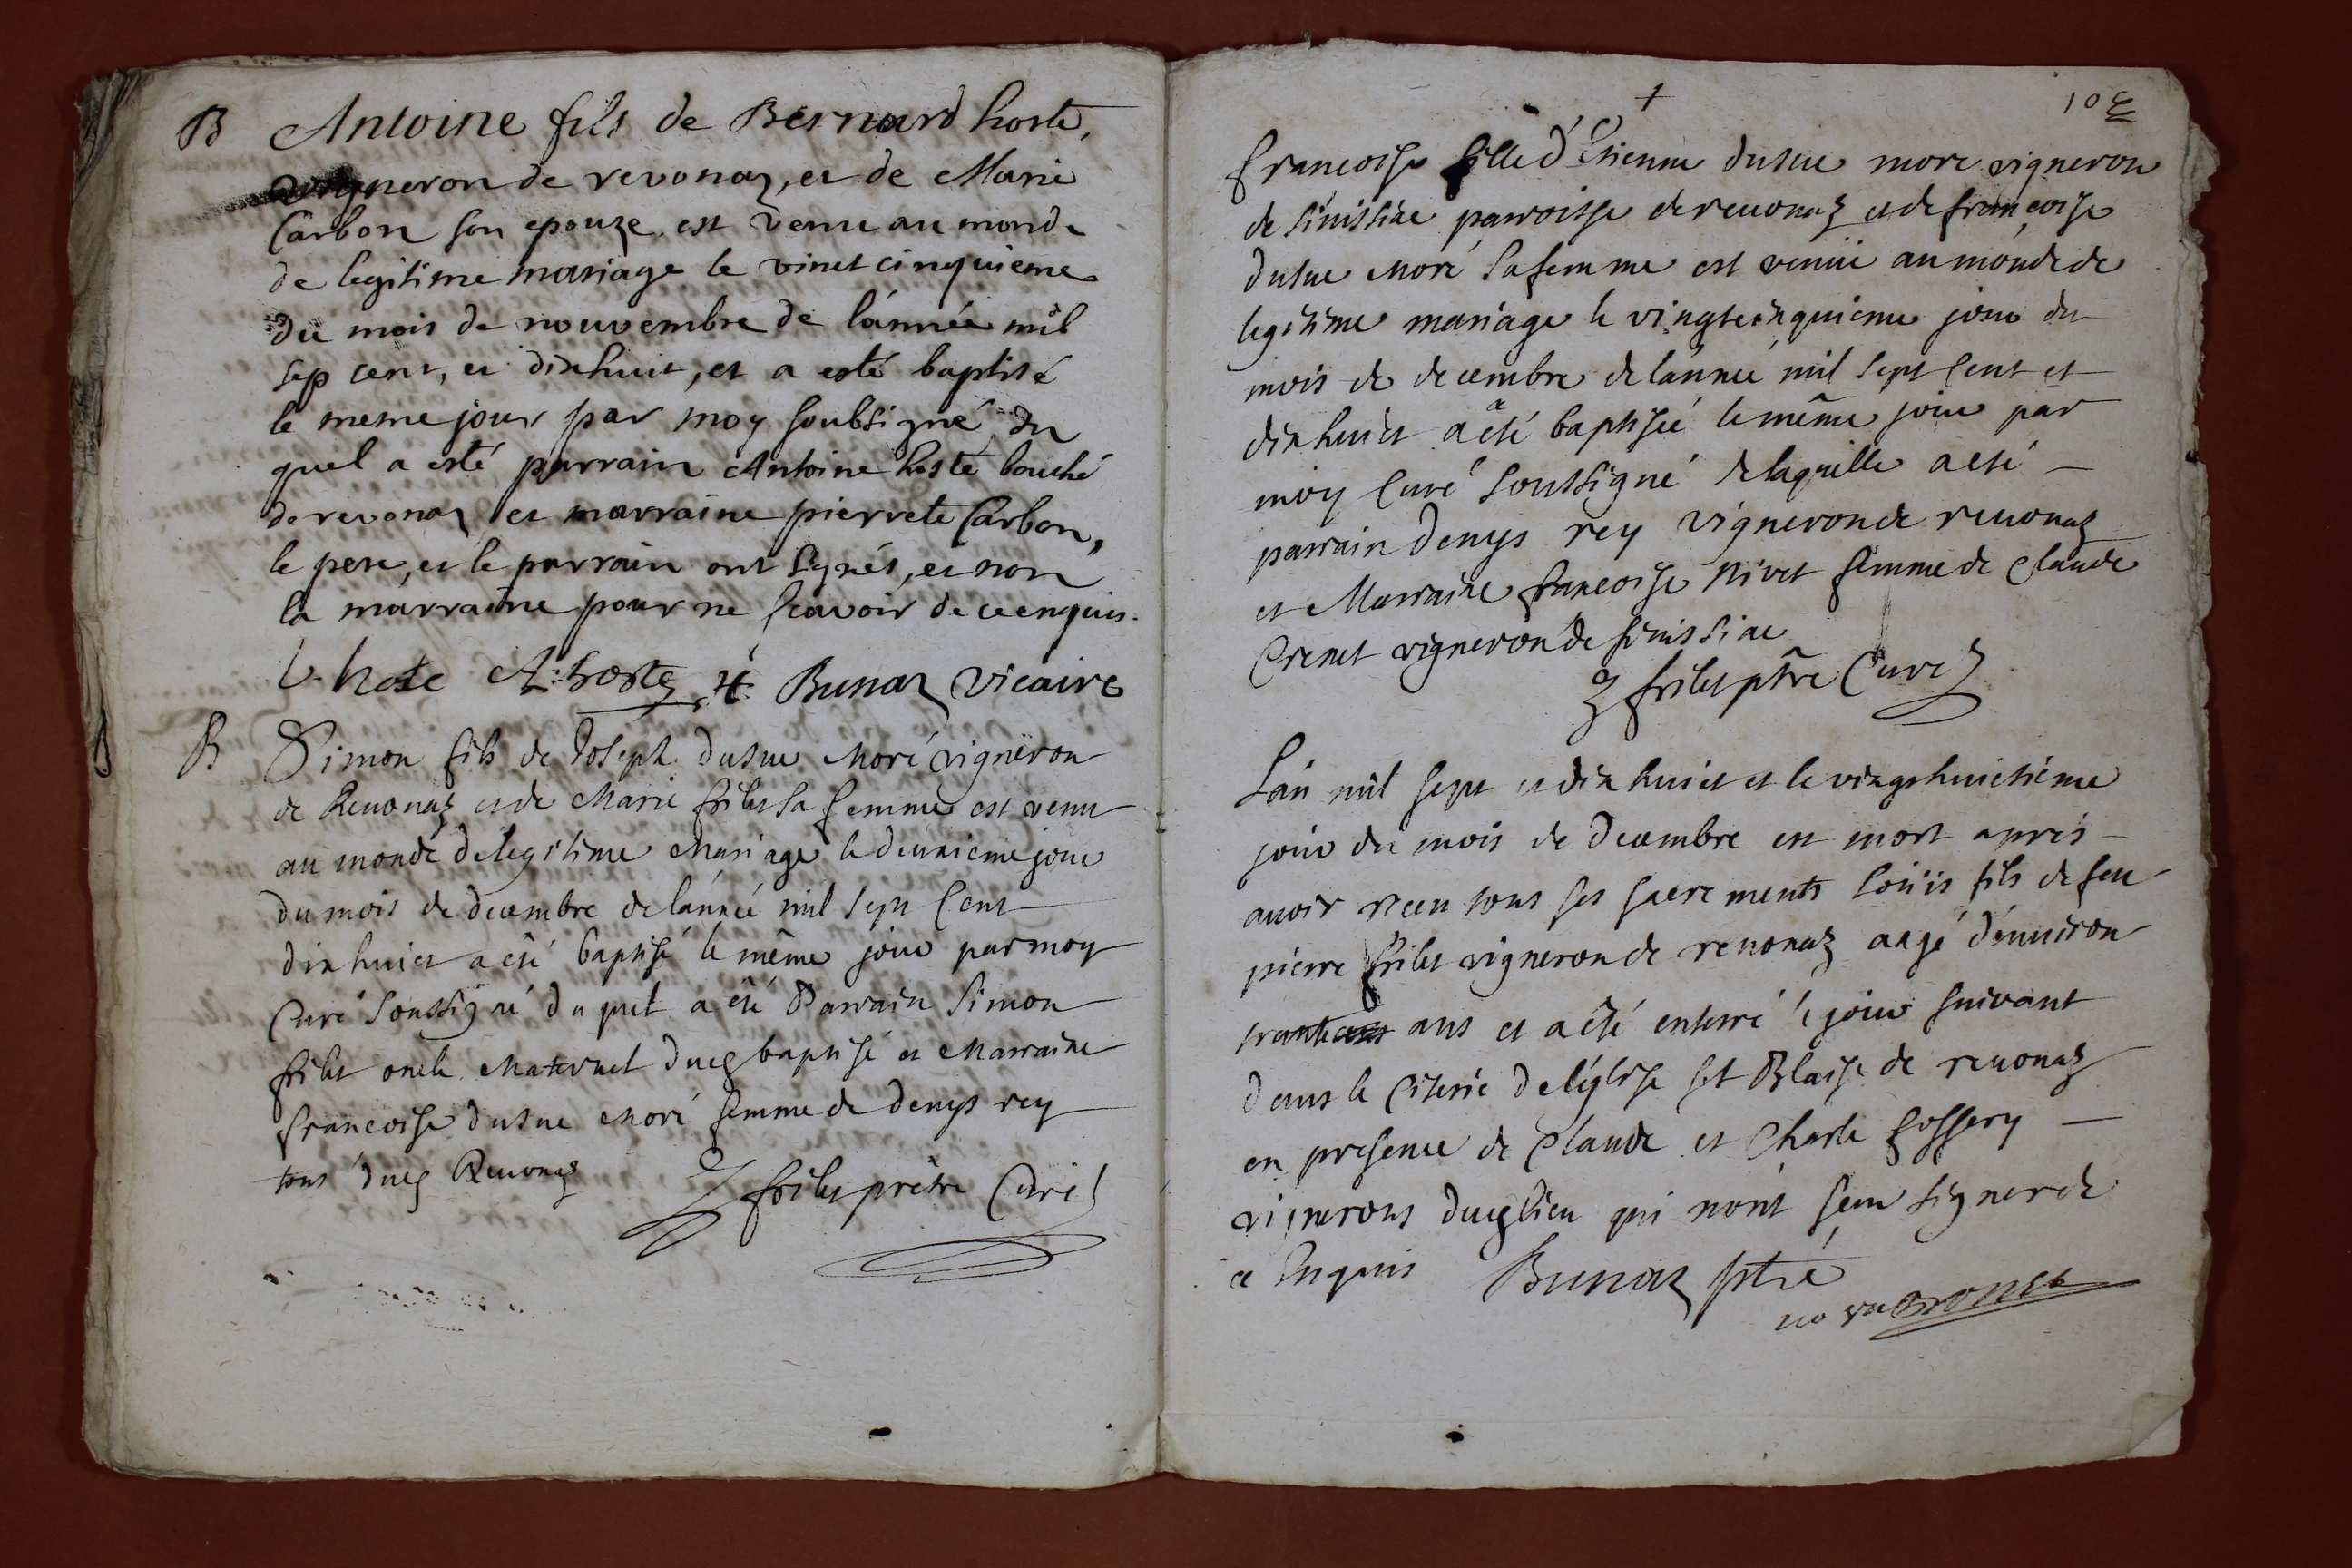 B Antoine fils de Bernard hoste,
vigneron de revonaz, et de Marie
Carbon son epouze est venu au monde
de legitime mariage le vint cinquieme
du mois de nouvembre de l'année mil
sep cent, et dixhuit, et a esté baptisé
le meme jour par moy soubsigné, du
quel a esté parrain Antoine hoste bouché
de revonaz et marraine pierrete Carbon,
le pere, et le parrain ont signés, et non
la marraine pour ne scavoir de ce enquis.
b. hoste A: hoste Bunaz vicaire
B Simon fils de Joseph dusue Moré vigneron
de Reuonaz et de Marie frilet sa femme est venu
au monde de legitime Mariage le deuxieme jour
du mois de decembre de l'année mil sept Cent
dixhuict a été baptisé le même jour par moy
Curé soussigné du quel a été Parrain Simon
frilet oncle Maternel dueg baptisé et Marraine
francoise dusue Moré femme de denys rey
tous dueg Reuonaz
frilet prêtre Curé
10
francoise fille d'Etienne dusue moré vigneron
de sinissiae parroisse de reuonaz et de françoise
dusue Moré sa femme est venüe au monde de
legitime mariage le vingtcinquieme jour du
mois de decembre de l'année mil sept Cent et
dixhuict a été baptisée le même jour par
moy Curé soussigné de laquelle a eté
parrain denys rey vigneron de reuonaz
et Marraine francoise Nivet femme de Claude
Crenet vigneron de sinissiae
frilet ptre Curé
L'an mil sept et dix huict et le vingt huictieme
jour du mois de decembre est mort apres
auoir receu tous ses sacrements Loüis fils de feu
pierre frilet vigneron de reuonaz aagé d'enuiron
trante ans et a été enterré le jour suivant
dans le Citerie de l'église st Blaise de reuonaz
en presence de Claude et Charle fossery
vignerons dueg lieu qui n'ont sceu signer de
ce Enquis Bunaz ptre